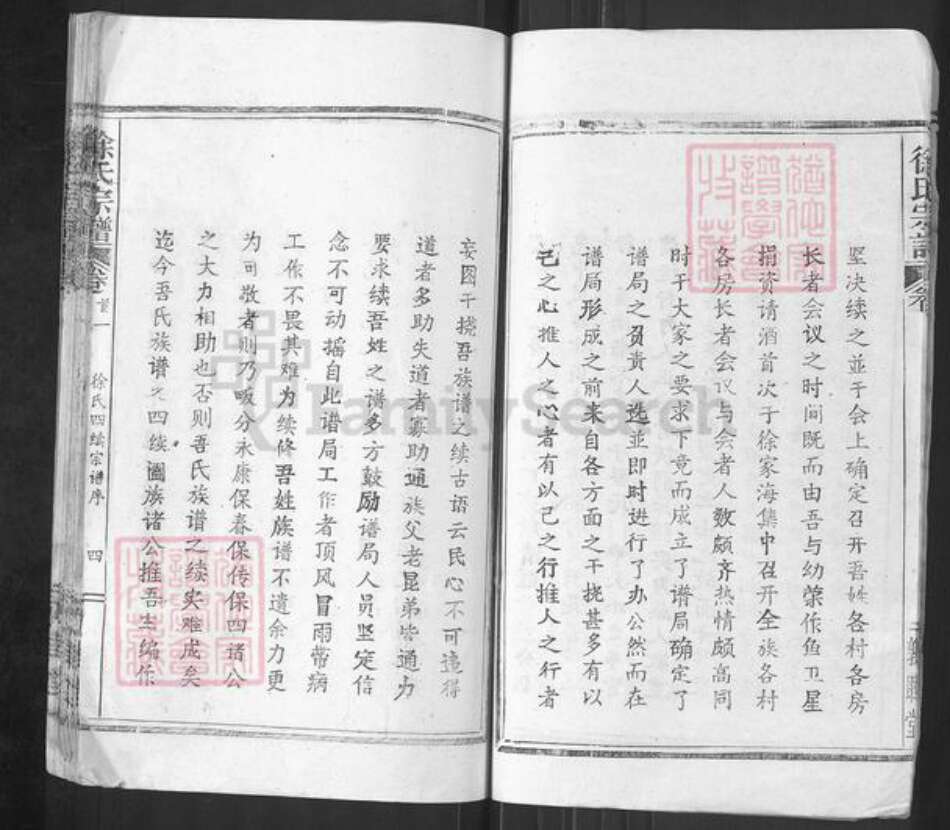 徐氏宗谱
坚决续之並于会上确定召开吾姓各村各房
长者会议之时间既而由吾与幼荣作鱼卫星
捐资请酒首次于徐家海集中召开全族各村
各房长者会议与会者人数颇齐热情颇高同
时于大家之要求下竟而成立了谱局确定了
谱局之负责人选並即时进行了办公然而在
谱局形成之前来自各方面之干扰甚多有以
己之心推人之心者有以己之行推人之行者
妄图干扰吾族谱之续古语云民心不可违得
道者多助失道者寡助通族父老昆弟皆通力
要求续吾姓之谱多方鼓励谱局人员坚定信
念不可动摇自此谱局工作者顶风冒雨带病
工作不畏其难为续修吾姓族谱不遗余力更
为可敬者则乃吸分永康保春保传保四诸公
之大力相助也否则吾氏族谱之续实难成矣
迄今吾氏族谱之四续阖族诸公推吾主编作
徐氏宗譜
卷首一
徐氏四续宗谱序
四
FamilySearch